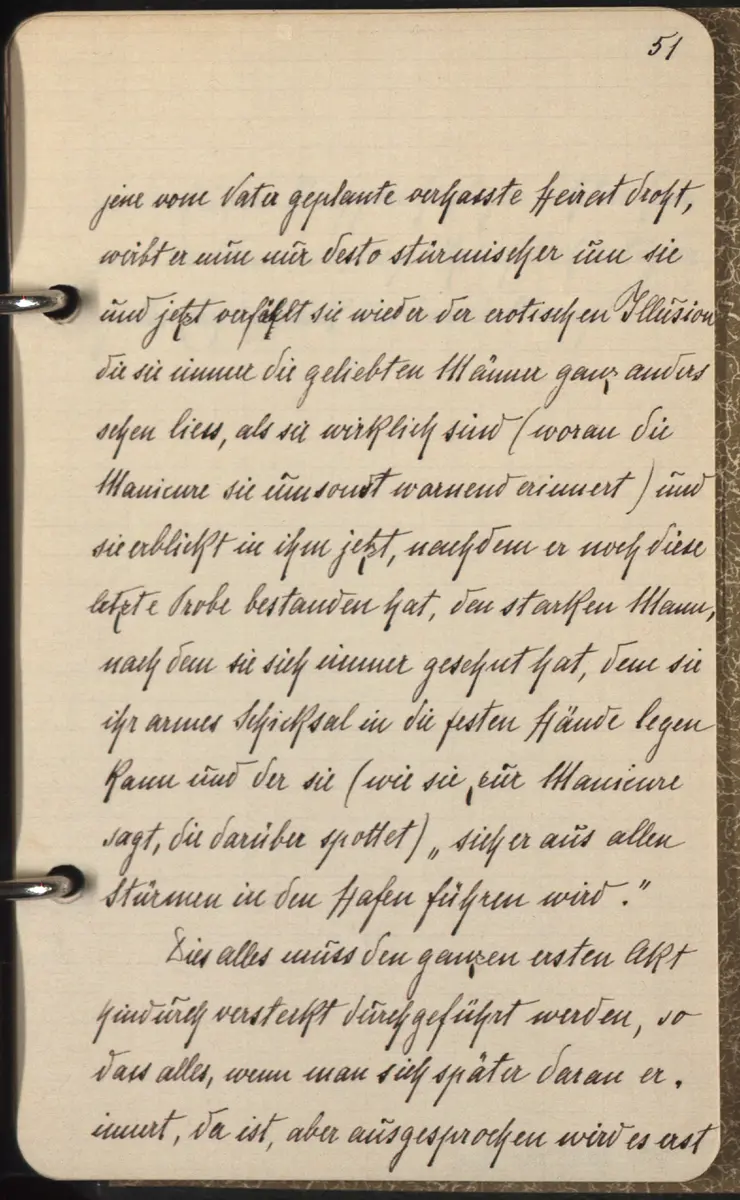 51
jene vom Vater geplante verhasste Heirat droht,
wirbt er nun nur desto stürmischer um sie
und jetzt verfällt sie wieder der erotischen Illusion
die sie immer die geliebten Männer ganz anders
sehen liess, als sie wirklich sind (woran die
Manicure sie umsonst warnend erinnert) und
sie erblickt in ihm jetzt, nachdem er noch diese
letzte Probe bestanden hat, den starken Mann,
nach dem sie sich immer gesehnt hat, dem sie
ihr armes Schicksal in die festen Hände legen
kann und der sie (wie sie zur Manicure
sagt, die darüber spottet) „sicher aus allen
Stürmen in den Hafen führen wird."
Dies alles muss den ganzen ersten Akt
hindurch versteckt durchgeführt werden, so
dass alles, wenn man sich später daran er-
innert, da ist, aber ausgesprochen wird es erst